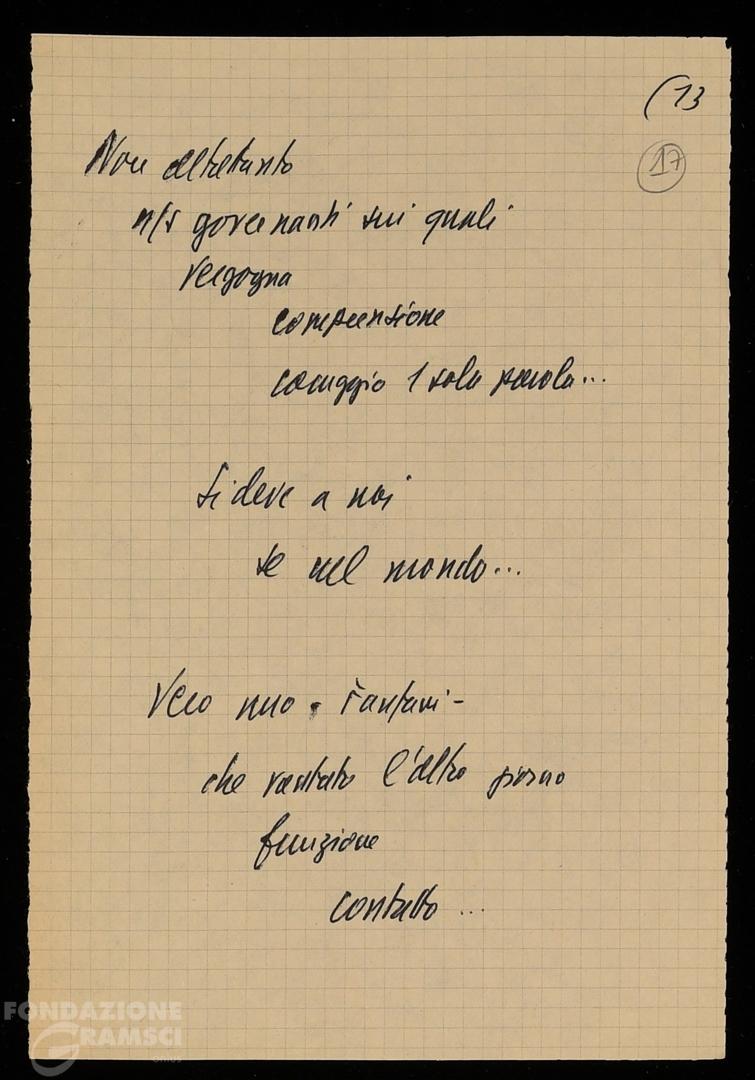 (13
17
Non altrettanto
n/s governanti sui quali
vergogna
comprensione
coraggio 1 sola parola...
si deve a noi
se nel mondo...
Vero Fanfani -
che vantato l'altro giorno
funzione
contatto ...
FONDAZIONE
GRAMSCI
ONLUS